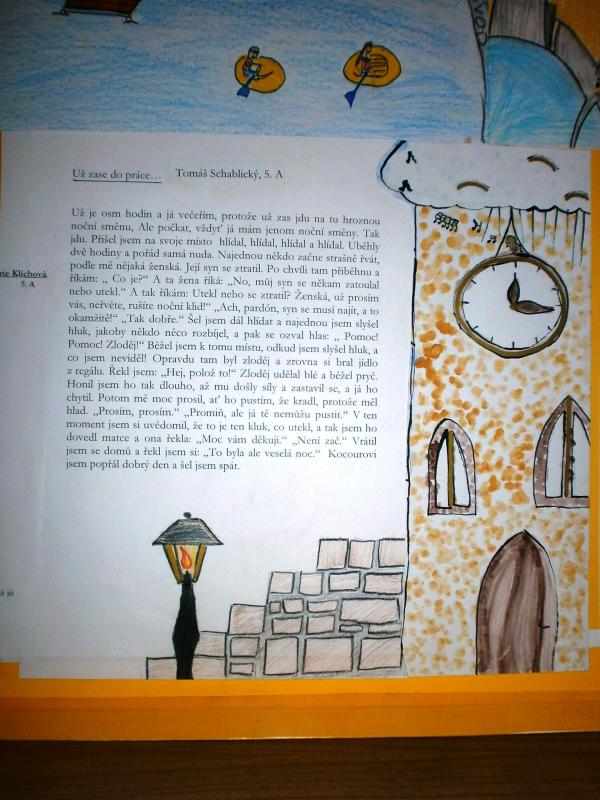 Už zase do práce... Tomáš Schablický, 5. A
Už je osm hodin a já večeřím, protože už zas jdu na tu hroznou
noční směnu, Ale počkat, vždyť já mám jenom noční směny. Tak
jdu. Přišel jsem na svoje místo hlídal, hlídal, hlídal a hlídal. Uběhly
dvě hodiny a pořád samá nuda. Najednou někdo začne strašně řvát,
podle mě nějaká ženská. Její syn se ztratil. Po chvíli tam příběhnu a
říkám: „ Co je?“ A ta žena říká: „No, můj syn se někam zatoulal
nebo utekl.“ A tak říkám: Utekl nebo se ztratil? Ženská, už prosím
vás, neřvěte, rušíte noční klid!“ „Ach, pardón, syn se musí najít, a to
okamžitě!“ „Tak dobře.“ Šel jsem dál hlídat a najednou jsem slyšel
hluk, jakoby někdo něco rozbíjel, a pak se ozval hlas: „ Pomoc!
Pomoc! Zloděj!“ Běžel jsem k tomu místu, odkud jsem slyšel hluk, a
co jsem neviděl! Opravdu tam byl zloděj a zrovna si bral jídlo
z regálu. Řekl jsem: „Hej, polož to!“ Zloděj udělal blé a běžel pryč.
Honil jsem ho tak dlouho, až mu došly síly a zastavil se, a já ho
chytil. Potom mě moc prosil, ať ho pustím, že kradl, protože měl
hlad. „Prosím, prosím.“ „Promiň, ale já tě nemůžu pustit.“ V ten
moment jsem si uvědomil, že to je ten kluk, co utekl, a tak jsem ho
dovedl matce a ona řekla: „Moc vám děkuji.“ „Není zač.“ Vrátil
jsem se domů a řekl jsem si: „To byla ale veselá noc.“ Kocourovi
jsem popřál dobrý den a šel jsem spát.
rie Klichová
5. A
jít